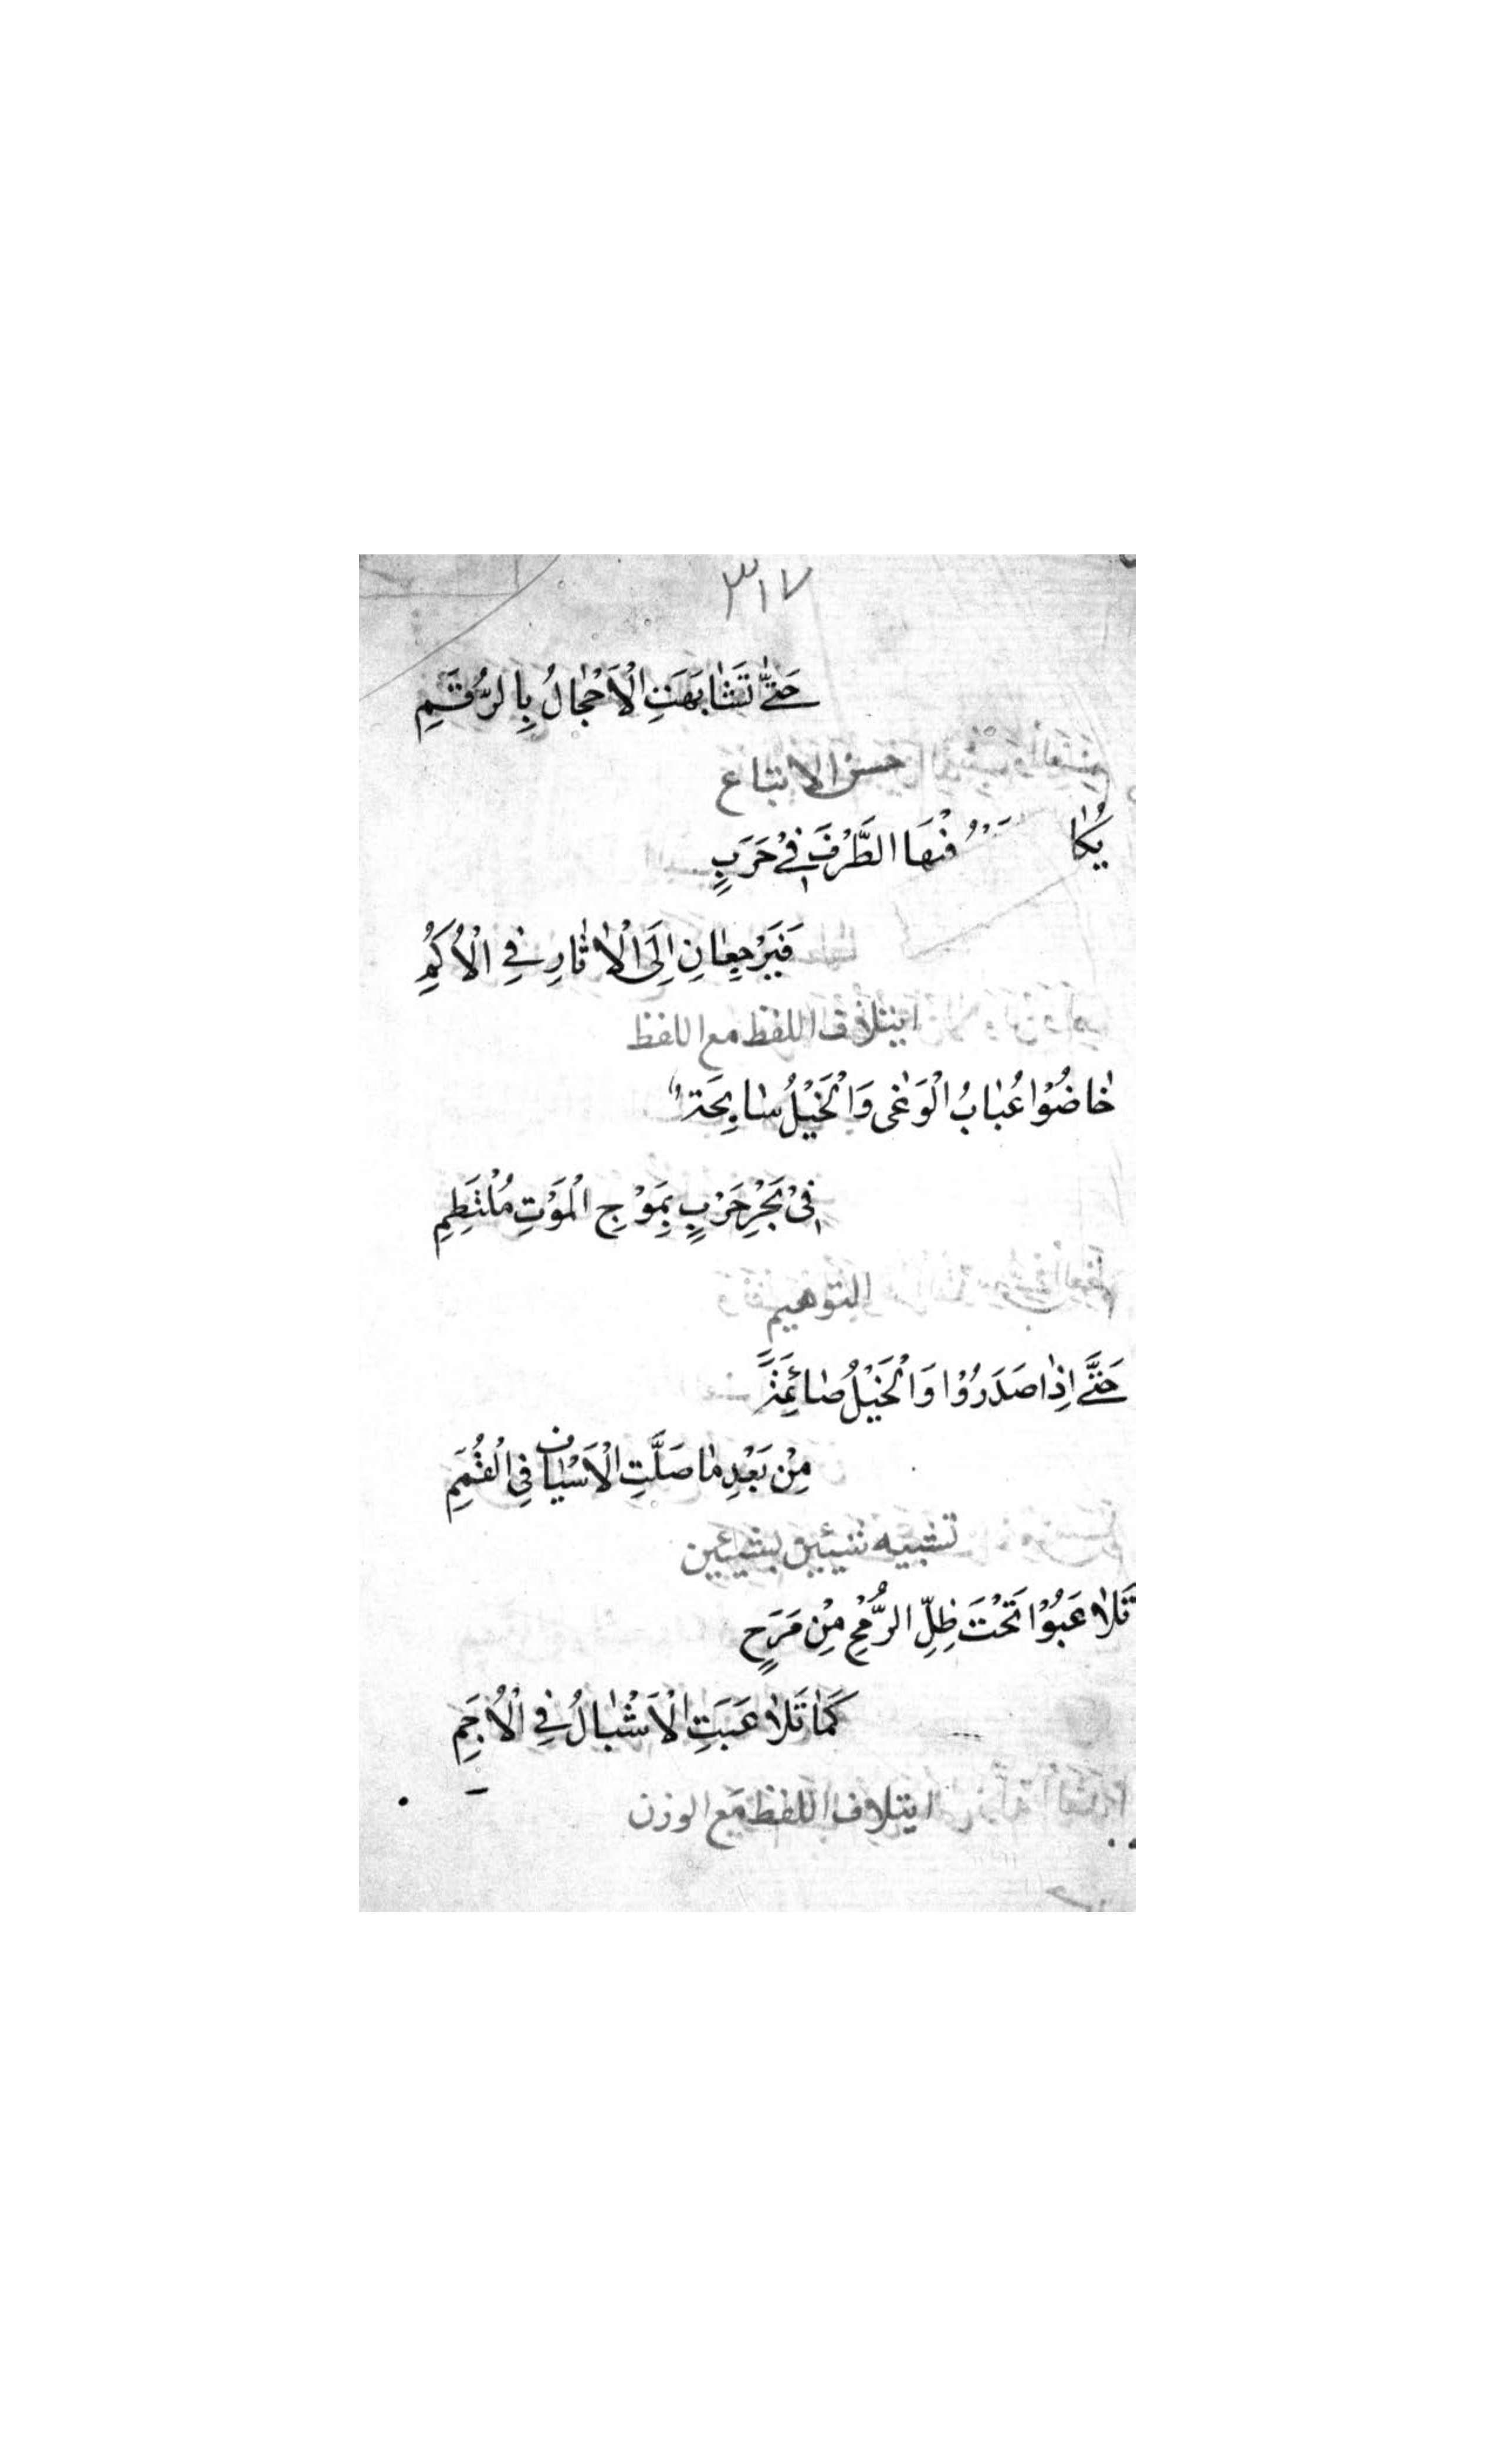 ٣١٧
حَتّٰى تَشٰابَهَتِ الْاَحْجٰالُ بِالرُّقَمِ
حسن الاتباع
يُكٰا مْنهَا الطَّرْفَ فِيْ حَرَبٍ
فَيَرْجِعٰانِ اِلَى الْاٰثٰارِ فِي الْاُكُمِ
ايتلاف اللفظ مع اللفظ
خٰاضُوْا عُبٰابُ الْوَغٰى وَالْخَيْلُ سٰابِحَةٌ
فِيْ بَحْرِ حَرْبٍ بِمَوْجِ الْمَوْتِ مُلْتَطِمِ
التوهيم
حَتَّى اِذٰا صَدَرُوْا وَالْخَيْلُ صٰائِمَةً
مِنْ بَعْدِ مٰا صَلَّتِ الْاَسْيٰاف فِي الْقُمَمِ
تشبيه شيئين بشيئين
تَلٰاعَبُوْا تَحْتَ ظِلِّ الرُّمْحِ مِنْ مَرَحٍ
كَمٰا تَلٰاعَبَتِ الْاَشْبٰالُ فِي الْاُجَمِ
ايتلاف اللفظ مع الوزن